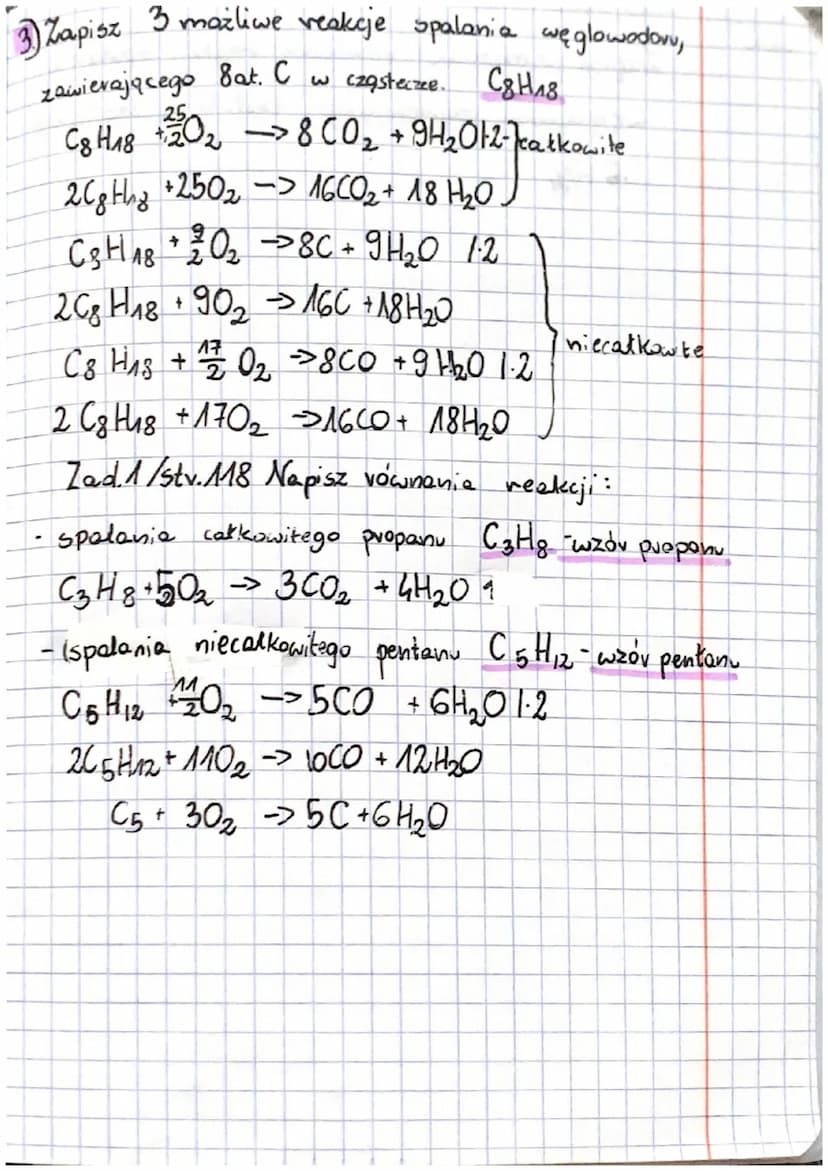 3) Zapisz 3 możliwe reakcje spalania węglowodoru,
zawierającego 8at. C w cząsteczce. C8H18
C8H18 + 25/2 O2 → 8CO2 + 9H2O |·2 - całkowite
2C8H18 + 25O2 → 16CO2 + 18H2O
C8H18 + 9/2 O2 → 8C + 9H2O |·2
2C8H18 + 9O2 → 16C + 18H2O
niecałkowite
C8H18 + 17/2 O2 → 8CO + 9H2O |·2
2C8H18 + 17O2 → 16CO + 18H2O
Zad.1/str.118 Napisz równania reakcji:
- spalania całkowitego propanu C3H8 - wzór propanu
C3H8 + 5O2 → 3CO2 + 4H2O
- (spalania niecałkowitego pentanu C5H12 - wzór pentanu
C5H12 + 11/2 O2 → 5CO + 6H2O |·2
2C5H12 + 11O2 → 10CO + 12H2O
C5 + 3O2 → 5C + 6H2O